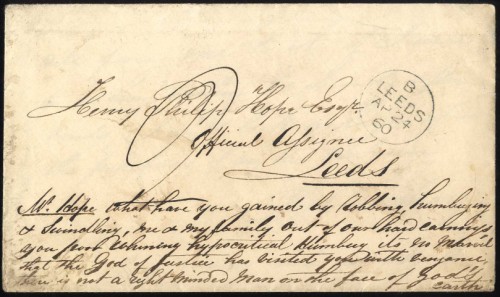 Henry Philip Hope Esqr.
Official Assignee
Leeds
B
LEEDS
AP 24
60
2
Mr. Hope what have you gained by robbing, humbuging
& swindling, me & my family out of our hard earnings
you poor hypocritical Humbug its no marvel
that the God of Justice has visited you with vengeance,
there is not a right minded man on the face of God's
earth